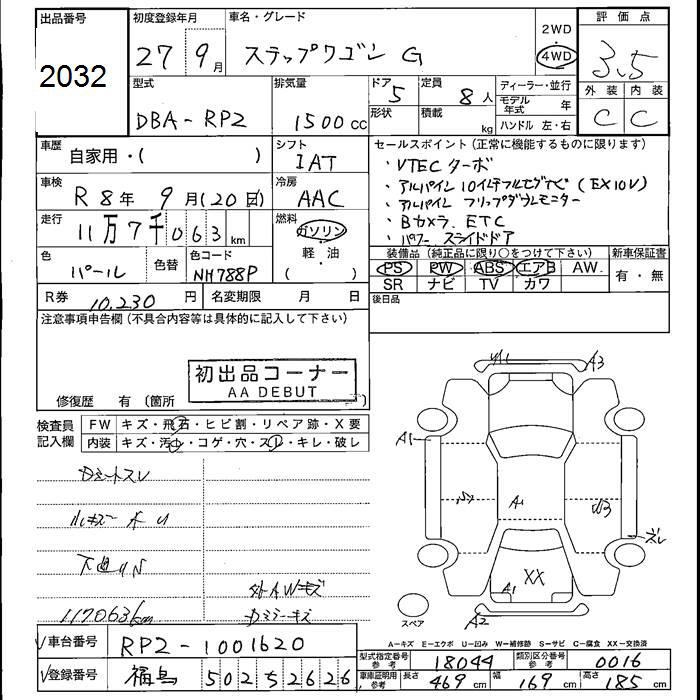 出品番号
2032
初度登録年月
27 9月
車名・グレード
ステップワゴン G
2WD
4WD
評価点
3.5
外装 内装
C C
型式
DBA-RP2
排気量
1500cc
ドア 5
形状
定員 8人
積載 kg
ディーラー・並行
モデル年式 年
ハンドル 左・右
車歴
自家用・( )
シフト
IAT
車検
R8年 9月(20日)
冷房
AAC
走行
11万7千063km
燃料
ガソリン
軽・油
( )
色
パール
色替
色コード
NH788P
R券 10,230 円
名変期限 月 日
セールスポイント(正常に機能するものに限ります)
・VTECターボ
・アルパイン 10インチフルセグナビ(EX10V)
・アルパイン フリップダウンモニター
・Bカメラ.ETC
・パワースライドドア
装備品(純正品に限り○をつけて下さい)
PS PW ABS エアB AW
SR ナビ TV カワ
新車保証書
有・無
後日品
注意事項申告欄(不具合内容等は具体的に記入して下さい)
初出品コーナー
AA DEBUT
修復歴 有(箇所
検査員記入欄
FW キズ・飛石・ヒビ割・リペア跡・X要
内装 キズ・汚れ・コゲ・穴・スレ・キレ・破レ
117063km
A3
A1
A1
XX
A1
A2
スペア
A=キズ E=エクボ U=凹み W=補修跡 S=サビ C=腐食 XX=交換済
車台番号 RP2-1001620
登録番号 福島 502 52626
型式指定番号 参考 18044
類別区分番号 参考 0016
車庫証明用 参考 長さ 469cm 幅 169cm 高さ 185cm